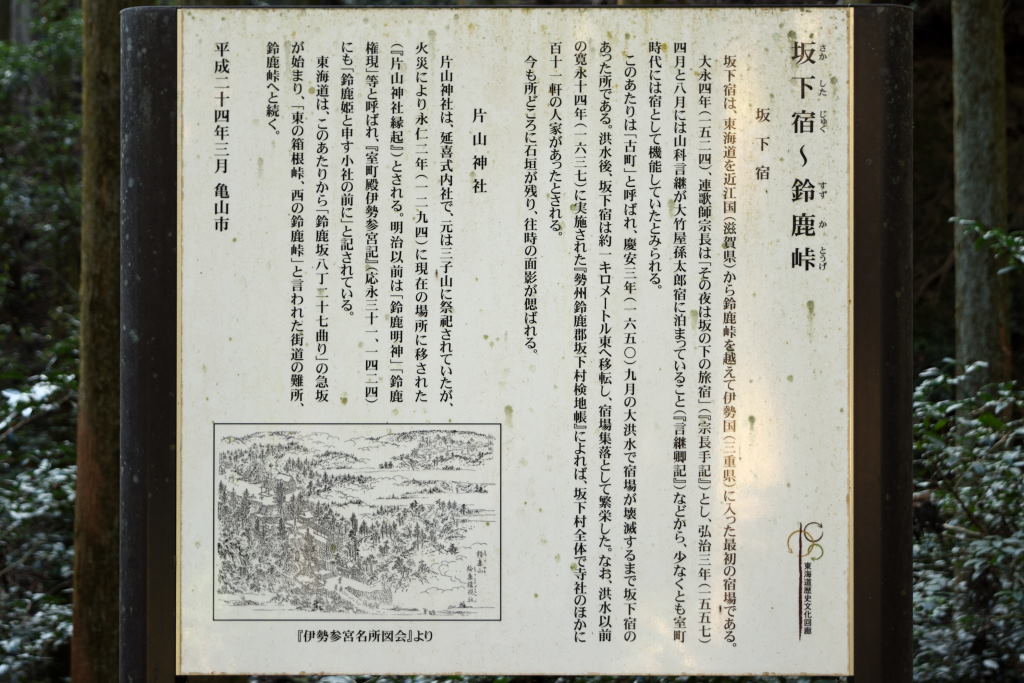 坂下宿～鈴鹿峠
さか した じゅく すず か とうげ
坂下宿
坂下宿は、東海道を近江国（滋賀県）から鈴鹿峠を越えて伊勢国（三重県）に入った最初の宿場である。
大永四年（一五二四）、連歌師宗長は「その夜は坂の下の旅宿」（『宗長手記』）とし、弘治三年（一五五七）
四月と八月には山科言継が大竹屋孫太郎宿に泊まっていること（『言継卿記』）などから、少なくとも室町
時代には宿として機能していたとみられる。
このあたりは「古町」と呼ばれ、慶安三年（一六五〇）九月の大洪水で宿場が壊滅するまで坂下宿の
あった所である。洪水後、坂下宿は約一キロメートル東へ移転し、宿場集落として繁栄した。なお、洪水以前
の寛永十四年（一六三七）に実施された『勢州鈴鹿郡坂下村検地帳』によれば、坂下村全体で寺社のほかに
百十一軒の人家があったとされる。
今も所どころに石垣が残り、往時の面影が偲ばれる。
片山神社
片山神社は、延喜式内社で、元は三子山に祭祀されていたが、
火災により永仁二年（一二九四）に現在の場所に移された
（『片山神社縁起』）とされる。明治以前は「鈴鹿明神」「鈴鹿
権現」等と呼ばれ、『室町殿伊勢参宮記』（応永三十一、一四二四）
にも「鈴鹿姫と申す小社の前に」と記されている。
東海道は、このあたりから「鈴鹿坂八丁二十七曲り」の急坂
が始まり、「東の箱根峠、西の鈴鹿峠」と言われた街道の難所、
鈴鹿峠へと続く。
平成二十四年三月 亀山市
東海道歴史文化回廊
鈴鹿山
『伊勢参宮名所図会』より